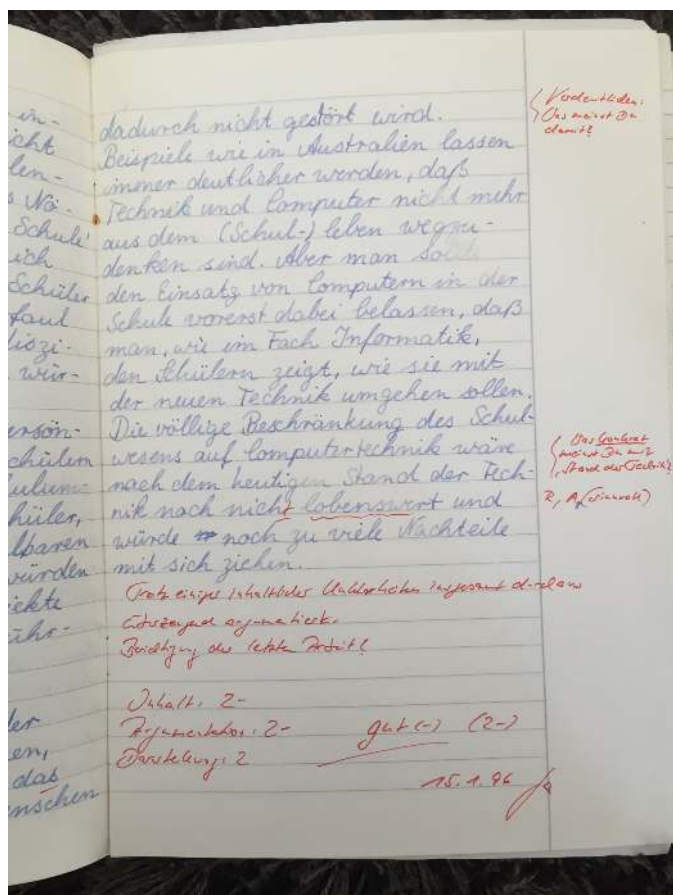 in-
icht
len-
s Nö-
Schule'
ich
Schüler
faul
liszi-
wür-
ersön-
chülern
ulum-
hüler,
lbaren
würden
jekte
ühr-
der
en,
das
nschen
dadurch nicht gestört wird.
Beispiele wie in Australien lassen
immer deutlicher werden, daß
Technik und Computer nicht mehr
aus dem (Schul-) leben wegzu-
denken sind. Aber man sollte
den Einsatz von Computern in der
Schule vorerst dabei belassen, daß
man, wie im Fach Informatik,
den Schülern zeigt, wie sie mit
der neuen Technik umgehen sollen.
Die völlige Beschränkung des Schul-
wesens auf Computertechnik wäre
nach dem heutigen Stand der Tech-
nik noch nicht lobenswert und
würde noch zu viele Nachteile
mit sich ziehen.
Trotz einiger inhaltlicher Unklarheiten insgesamt durchaus
überzeugend argumentiert.
Berichtigung der letzten Arbeit?
Inhalt: 2-
Argumentation: 2-
gut (-) (2-)
Darstellung: 2
15.1.96
Verdeutlichen:
Was meinst Du
damit?
Was konkret
meinst Du mit
"Stand der Technik"?
R, A